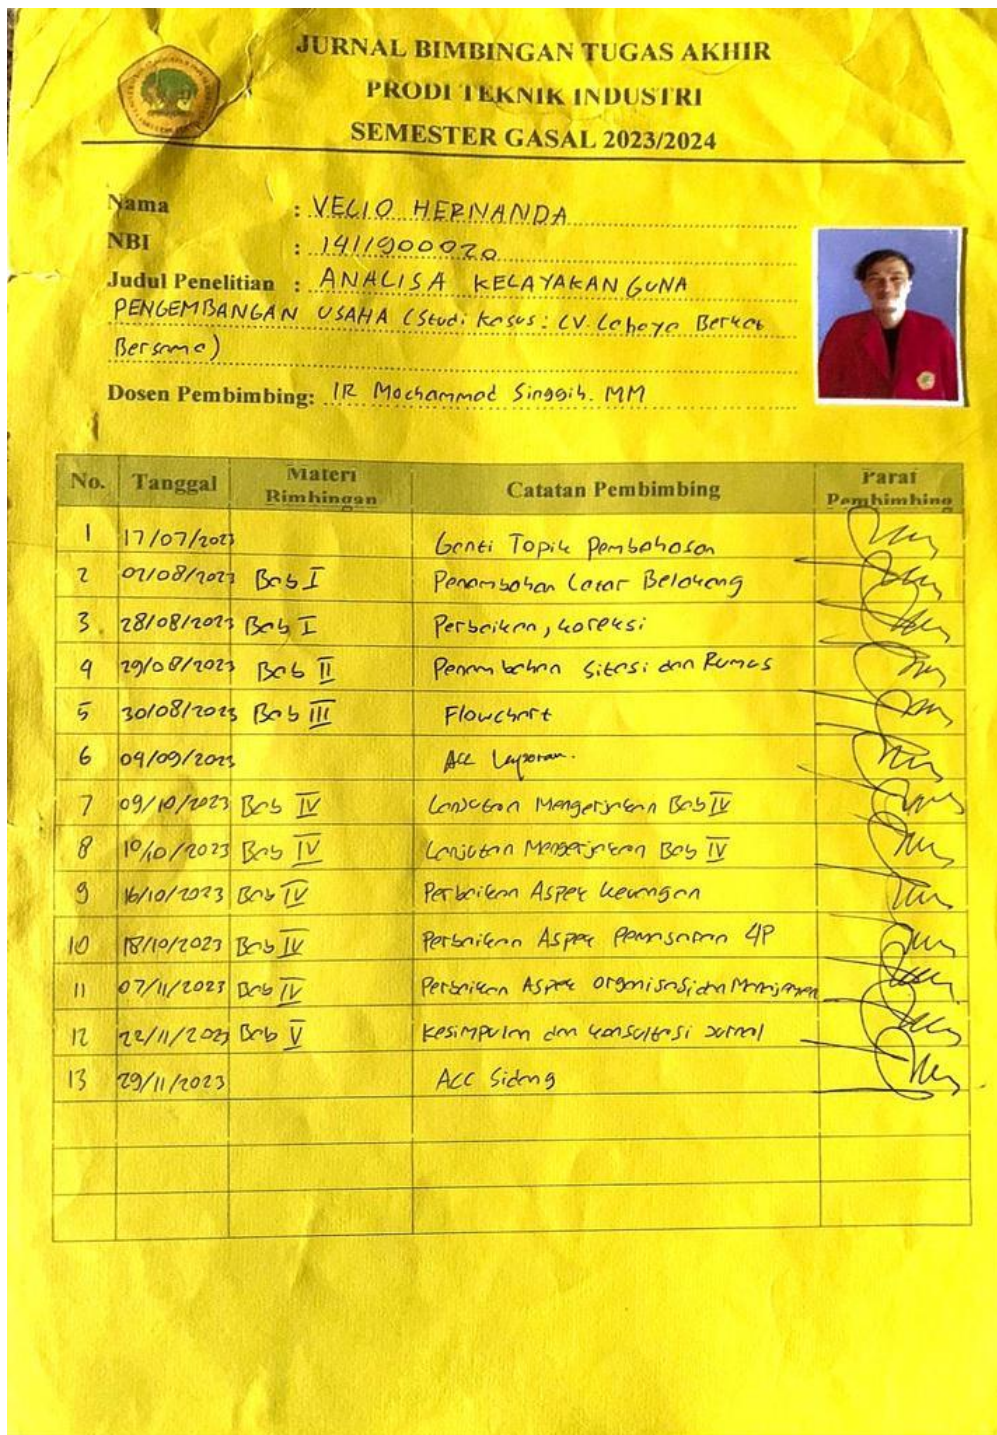 JURNAL BIMBINGAN TUGAS AKHIR
PRODI TEKNIK INDUSTRI
SEMESTER GASAL 2023/2024
Nama : VELIO HERNANDA
NBI : 1411900020
Judul Penelitian : ANALISA KELAYAKAN GUNA
PENGEMBANGAN USAHA (Studi Kasus: CV. Cahaya Berkat
Bersama)
Dosen Pembimbing: IR Mochammad Singgih. MM
No. Tanggal Materi Bimbingan Catatan Pembimbing Paraf Pembimbing
1 17/07/2023 Ganti Topik Pembahasan
2 02/08/2023 Bab I Penambahan Latar Belakang
3 28/08/2023 Bab I Perbaikan, koreksi
4 29/08/2023 Bab II Penambahan Sitasi dan Rumus
5 30/08/2023 Bab III Flowchart
6 04/09/2023 ACC Laporan.
7 09/10/2023 Bab IV Lanjutan Mengerjakan Bab IV
8 10/10/2023 Bab IV Lanjutan Mengerjakan Bab IV
9 16/10/2023 Bab IV Perbaikan Aspek keuangan
10 18/10/2023 Bab IV Perbaikan Aspek Pemasaran 4P
11 07/11/2023 Bab IV Perbaikan Aspek Organisasi dan Manajemen
12 22/11/2023 Bab V Kesimpulan dan konsultasi Jurnal
13 29/11/2023 ACC Sidang